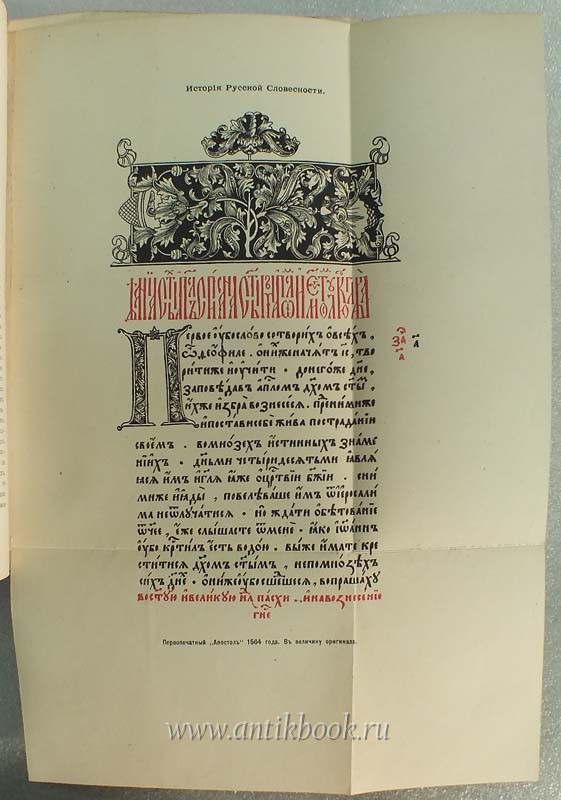 Исторія Русской Словесности.
Первое ѹ҆бо слово сотворихъ ѡ всѣхъ,
ѽ ѳеѡфиле. ѡ нихже начатъ і҃с, тво
рити же и учити. до негоже дн҃е,
заповѣдавъ ап҃лѡм дх҃ом ст҃ы,
ихже избра вознесеся. пред ними же
и постави себе жива по страданїи
своемъ. во мнозехъ истинныхъ знаме
нїихъ. дньми четыридесятьми ꙗвлꙗ
ꙗсꙗ имъ и гл҃ꙗ ꙗже о цр҃твїи бж҃їи. с ни
ми же и ꙗды, повелѣваше имъ ѿ іеросали
ма не ѿлучатися. но ждати обѣтованїе
ѿч҃ее, еже слышасте ѿ мене. ꙗко іѡаннъ
убо крⷭ҇тилъ есть водою. вы же имате кре
ститися дх҃омъ ст҃ымъ, не по мнозѣхъ
сихъ дн҃е. они же убо сшедшеся, вопрашаху
во ст҃ую и великую нⷣлю пасхи.. и на вознесенїе
гн҃е
за҃
а҃
Первопечатный „Апостолъ" 1564 года. Въ величину оригинала.
www.antikbook.ru